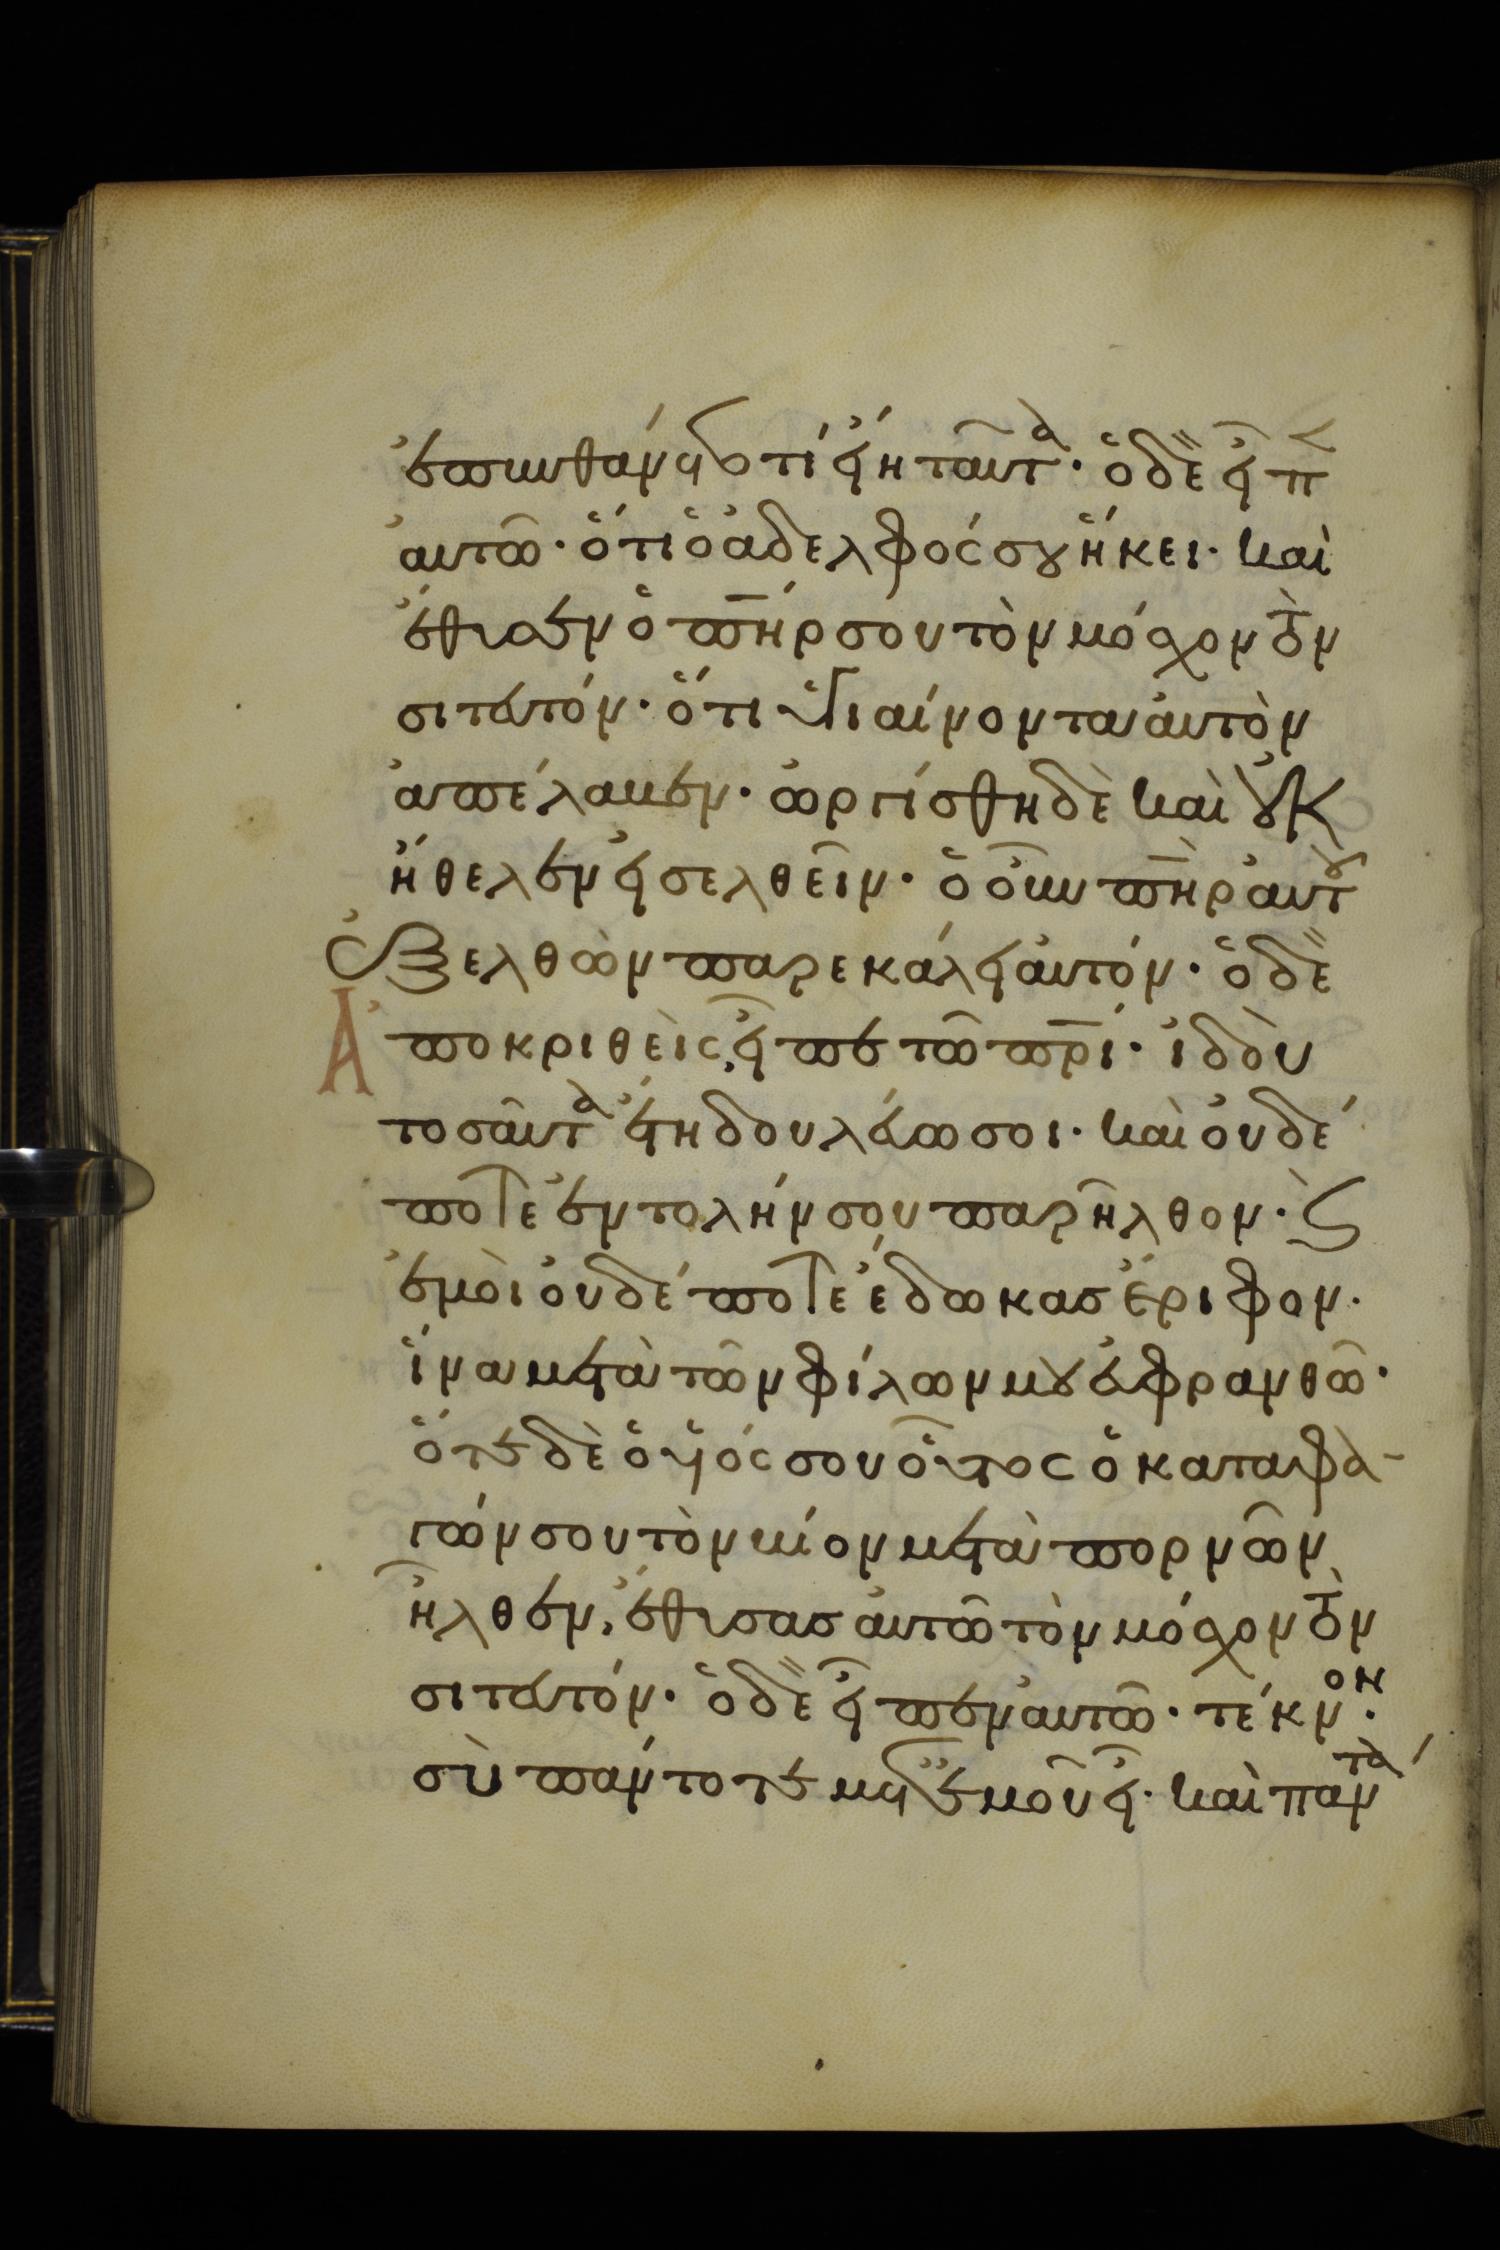 ἐπυνθάνετο τί εἴη ταῦτα· ὁ δὲ εἶπ
αὐτῶ· ὅτι ὁ ἀδελφός σου ἥκει· καὶ
ἔθυσεν ὁ π̅η̅ρ σου τὸν μόσχον τὸν
σιτευτόν· ὅτι ὑγιαίνοντα αὐτὸν
ἀπέλαβεν· ὠργίσθη δὲ καὶ οὐκ
ἤθελεν εἰσελθεῖν· ὁ οὖν π̅η̅ρ αὐτοῦ
ἐξελθὼν παρεκάλει αὐτόν· ὁ δὲ
Ἀποκριθεὶς, εἶπε τῶ π̅ρ̅ι· ἰδοὺ
τοσαῦτα ἔτη δουλεύω σοι· καὶ οὐδέ
ποτε ἐντολήν σου παρῆλθον· καὶ
ἐμοὶ οὐδέποτε ἔδωκας ἔριφον·
ἵνα μετὰ τῶν φίλων μου εὐφρανθῶ·
ὅτε δὲ ὁ υἱός σου οὗτος ὁ καταφα-
γών σου τὸν βίον μετὰ πορνῶν
ἦλθεν, ἔθυσας αὐτῶ τὸν μόσχον τὸν
σιτευτόν· ὁ δὲ εἶπεν αὐτῶ· τέκνον·
σὺ πάντοτε μετ' ἐμοῦ εἶ· καὶ πάντα